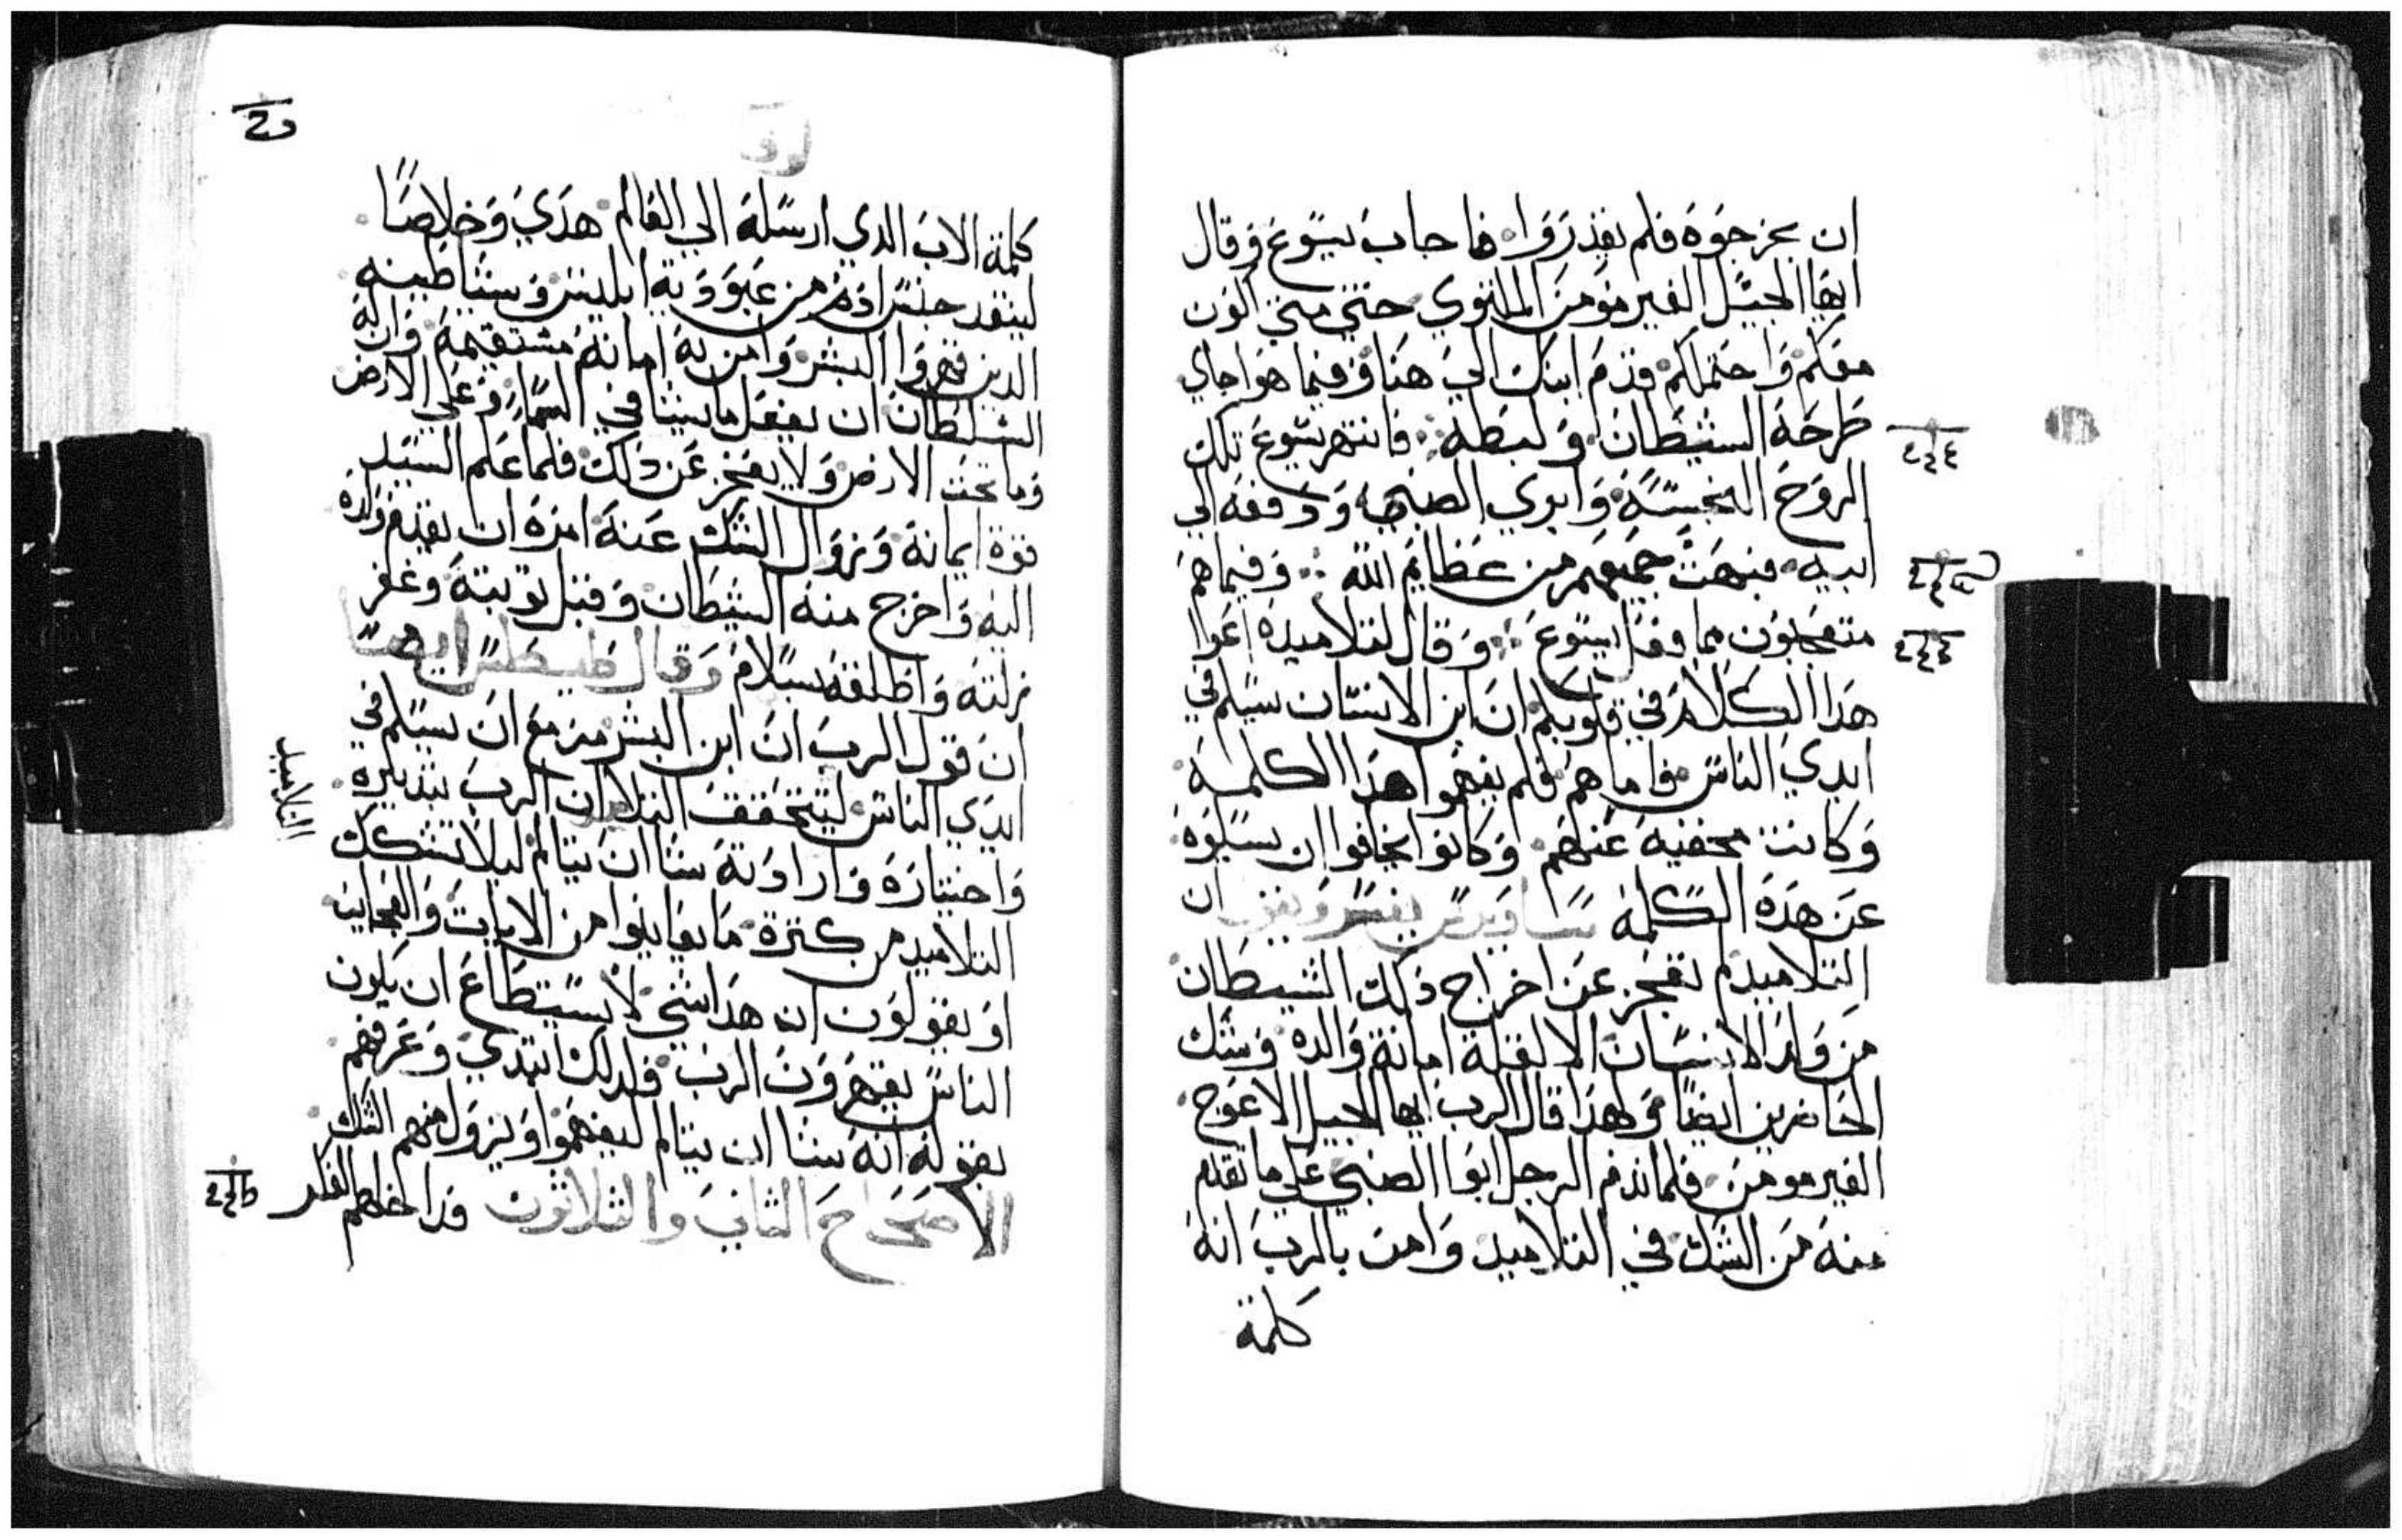 ان يخرجوه فلم يقدروا فاجاب يسوع وقال
ايها الجيل الغير مومن الملتوي حتي متي اكون
معكم واحتملكم قدم ابنك الي هنا وفيما هو اجاي
طرحه الشيطان ولبطه فانتهر يسوع تلك
الروح النجسة وابري الصبي ودفعه الي
ابيه فبهت جميعهم من عظايم الله وفيما هم
متعجبون مما فعل يسوع وقال لتلاميذه اعوا
هذا الكلام في قلوبكم ان ابن الانسان سيسلم في
ايدي الناس فاما هم فلم يفهموا هذا الكلمة
وكانت مخفيه عنهم وكانوا يخافوا ان يسلوه
عن هذه الكلمة ساويرس يفسر ويقول ان
التلاميذ لم تعجز عن اخراج ذلك الشيطان
من ولد الانسان الا لقلة امانة والده وشك
الحاضرين ايضا ولهذا قال الرب ايها الجيل الاعوج
الغير مومن فلما ندم الرجل ابوا الصبي علي ما تقدم
منه من الشك في التلاميد وامن بالرب انه
كلمة
لوقا
كلمة الاب الدي ارسله الي العالم هدي وخلاصا
لينقد جنس ادم من عبودية ابليس وشياطينه
الدين قهروا البشر وامن به امانه مستقيمة وان له
السلطان ان يفعل ما يشا في السما وعلي الارض
وما تحت الارض ولا يعجز عن دلك فلما علم السيد
قوة ايمانة وزوال الشك عنه امره ان يقدم ولده
اليه واخرج منه الشيطان وقبل توبته وغفر
زلته واطلقه بسلام وقال طيطس ايضا
ان قول الرب ان ابن البشر مزمع ان يسلم في
ايدي الناس ليتحقق التلا ان الرب بتدبيره
التلاميد
واختياره وارادته شا ان يتالم ليلا تشكك
التلاميد من كترة ما يعاينوا من الايات والعجايب
او يقولون ان هدا شي لا يستطاع ان يكون
الناس يقهرون الرب فلدلك ابتدي وعرفهم
بقوله انه شا ان يتالم ليفهموا ويزول منهم الشك
الاصحاح الثاني والثلاثون فداخلهم الفكر